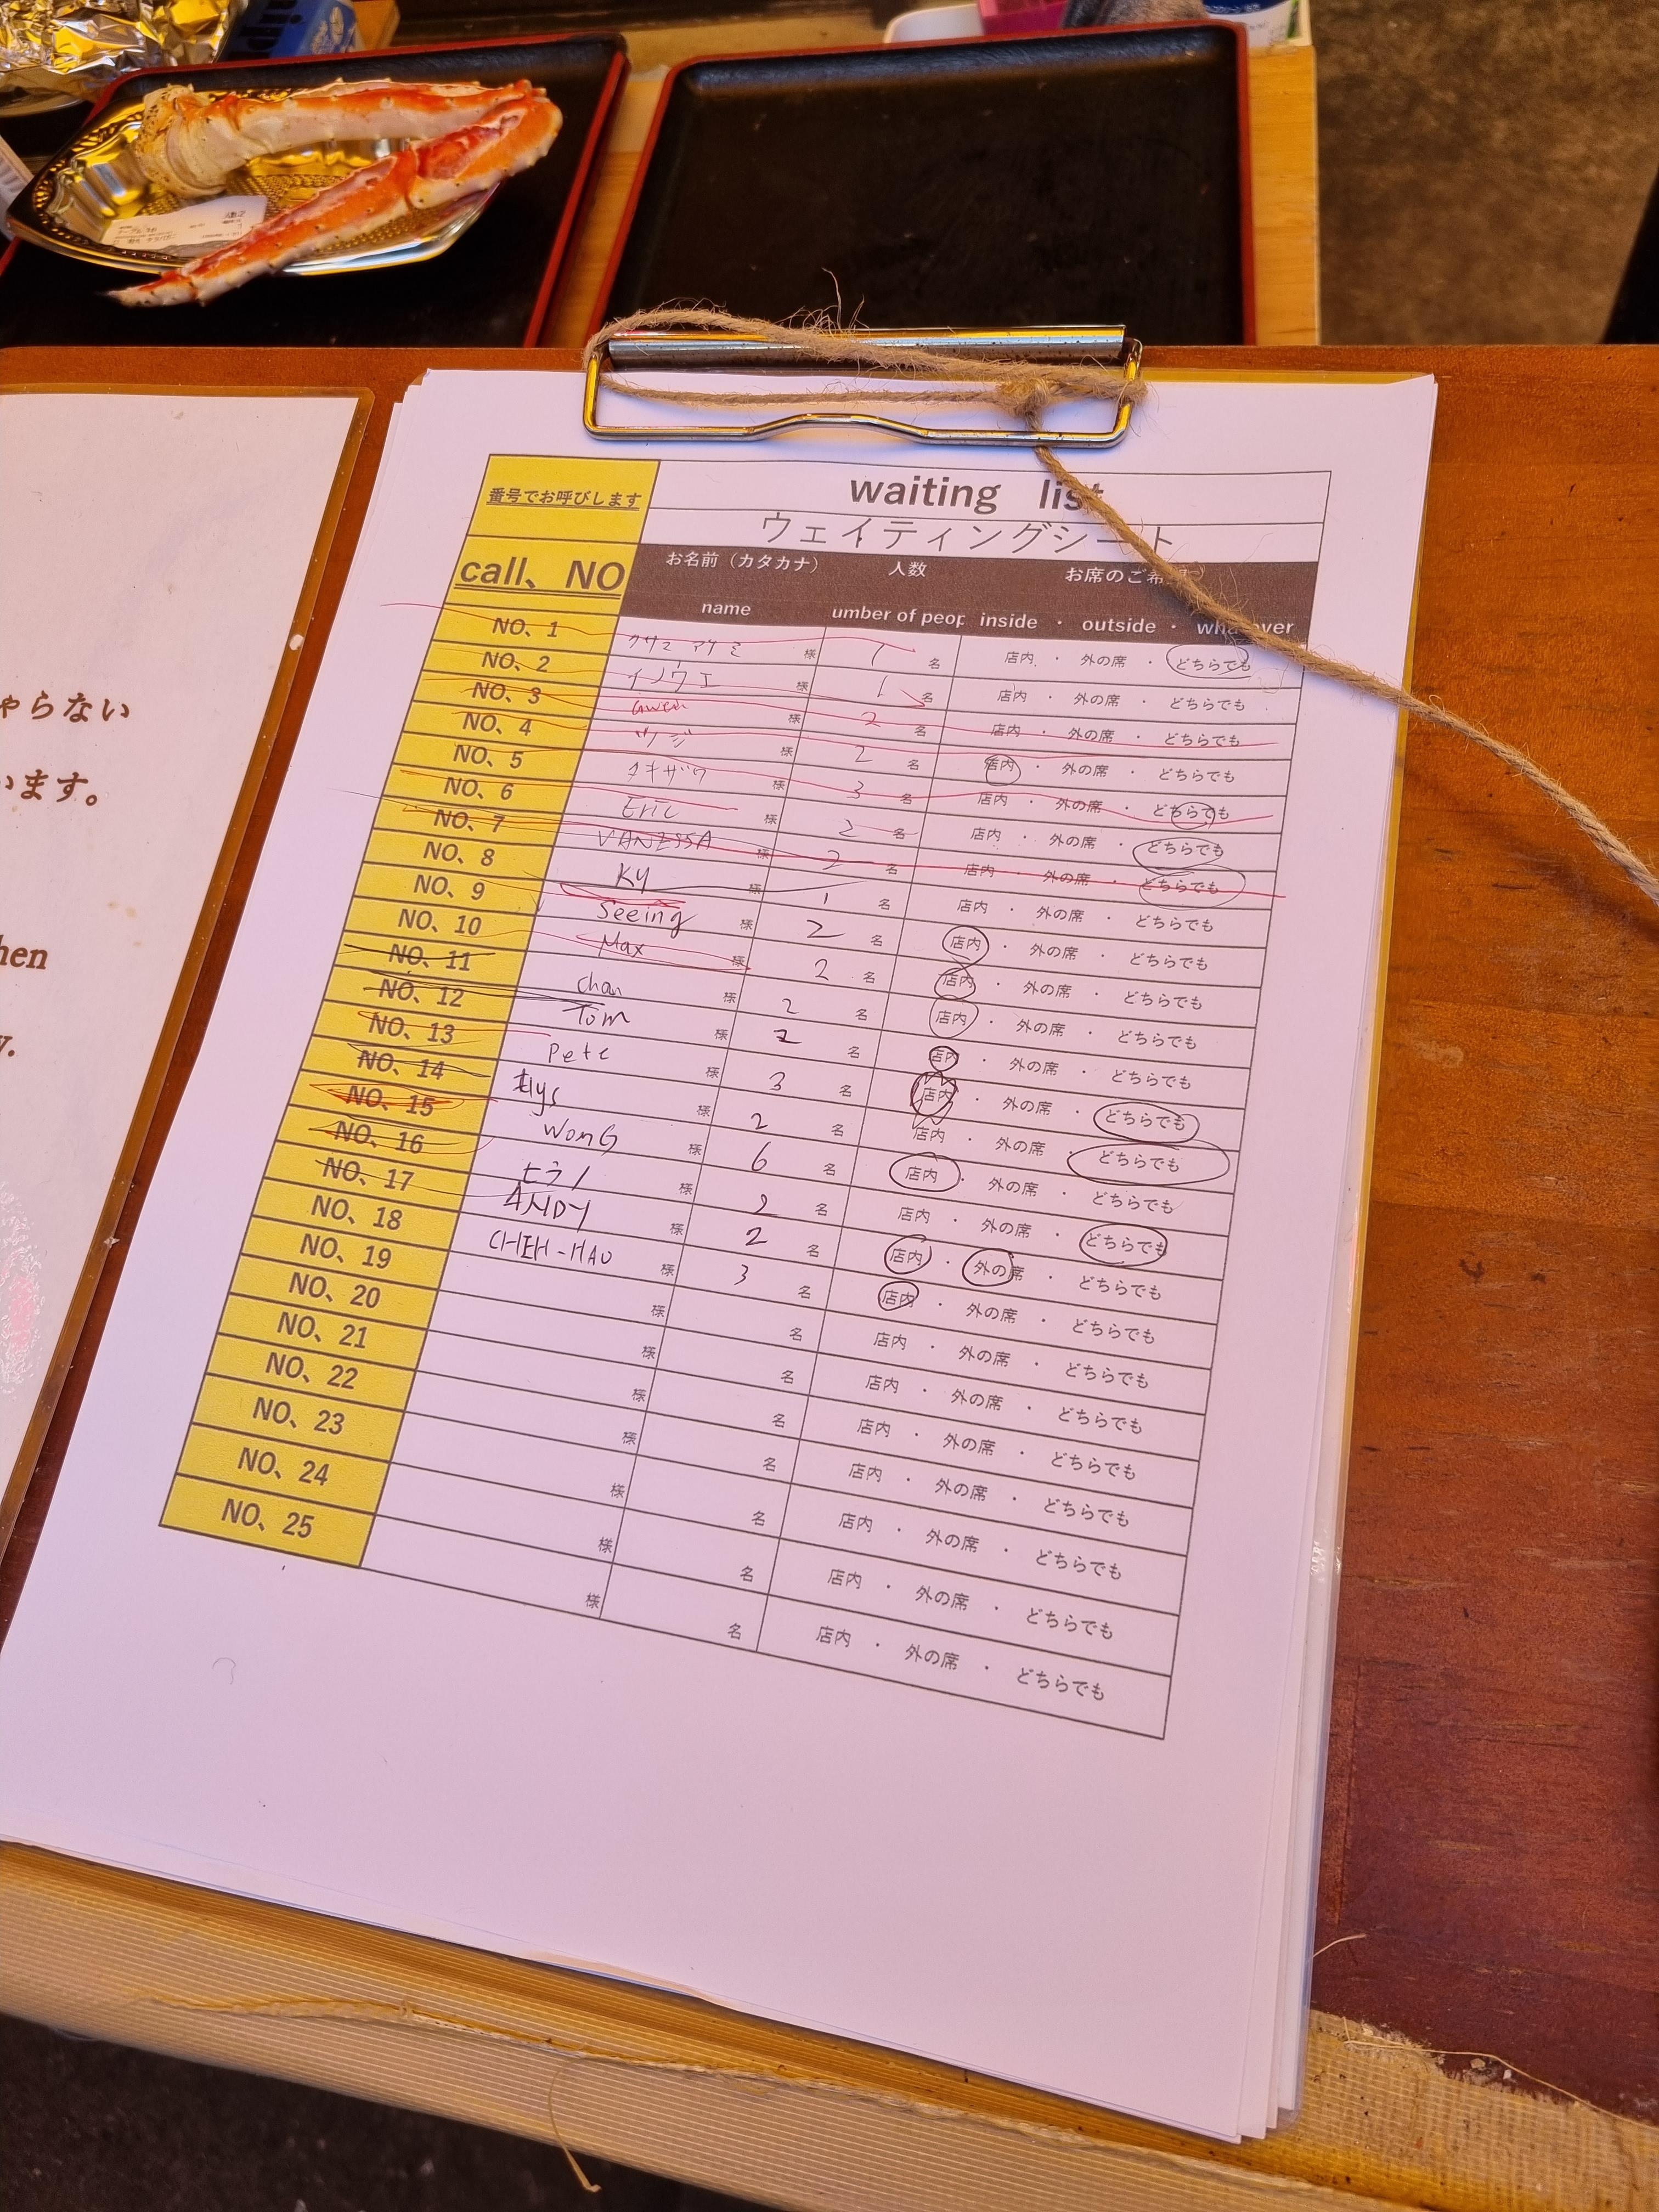 ゃらない
います。
hen
y.
番号でお呼びします
waiting list
ウェイティングシート
call、NO
お名前（カタカナ） 人数 お席のご希望
name umber of peop inside ・ outside ・ whatever
NO、1 様 1 名 店内 ・ 外の席 ・ どちらでも
NO、2 イノウエ 様 1 名 店内 ・ 外の席 ・ どちらでも
NO、3 Gwen 様 2 名 店内 ・ 外の席 ・ どちらでも
NO、4 ツジ 様 2 名 店内 ・ 外の席 ・ どちらでも
NO、5 タキザワ 様 3 名 店内 ・ 外の席 ・ どちらでも
NO、6 Eric 様 2 名 店内 ・ 外の席 ・ どちらでも
NO、7 VANESSA 様 2 名 店内 ・ 外の席 ・ どちらでも
NO、8 Ky 様 1 名 店内 ・ 外の席 ・ どちらでも
NO、9 Seeing 様 2 名 店内 ・ 外の席 ・ どちらでも
NO、10 Max 様 2 名 店内 ・ 外の席 ・ どちらでも
NO、11 chan 様 2 名 店内 ・ 外の席 ・ どちらでも
NO、12 Tom 様 2 名 店内 ・ 外の席 ・ どちらでも
NO、13 Pete 様 3 名 店内 ・ 外の席 ・ どちらでも
NO、14 Elys 様 2 名 店内 ・ 外の席 ・ どちらでも
NO、15 WonG 様 6 名 店内 ・ 外の席 ・ どちらでも
NO、16 ヒラノ 様 2 名 店内 ・ 外の席 ・ どちらでも
NO、17 ANDY 様 2 名 店内 ・ 外の席 ・ どちらでも
NO、18 CHEH-HAO 様 3 名 店内 ・ 外の席 ・ どちらでも
NO、19 様 名 店内 ・ 外の席 ・ どちらでも
NO、20 様 名 店内 ・ 外の席 ・ どちらでも
NO、21 様 名 店内 ・ 外の席 ・ どちらでも
NO、22 様 名 店内 ・ 外の席 ・ どちらでも
NO、23 様 名 店内 ・ 外の席 ・ どちらでも
NO、24 様 名 店内 ・ 外の席 ・ どちらでも
NO、25 様 名 店内 ・ 外の席 ・ どちらでも